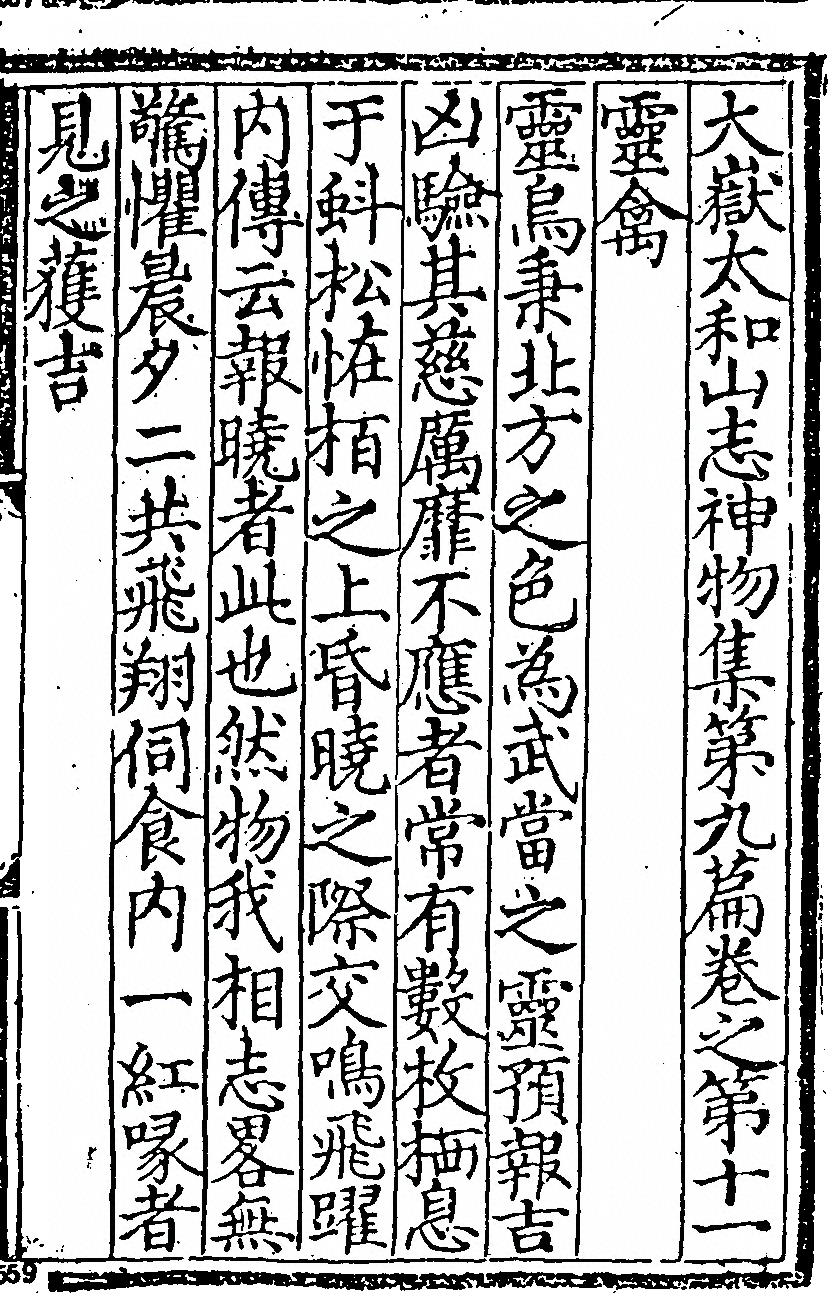 大嶽太和山志神物集第九篇卷之第十一
靈禽
靈烏秉北方之色為武當之靈預報吉
凶驗其慈厲靡不應者常有數枚栖息
于蚪松恠栢之上昏曉之際交鳴飛躍
内傳云報曉者此也然物我相志畧無
驚懼晨夕二共飛翔伺食内一紅喙者
見之獲吉
559